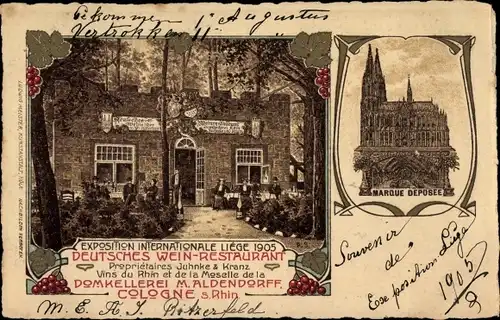 Gekommen 1 Augustus
Vertrokken 11 "
Deutsches
Wein-Restaurant
EXPOSITION INTERNATIONALE LIÈGE 1905
DEUTSCHES WEIN-RESTAURANT
Propriétaires Juhnke & Kranz
Vins du Rhin et de la Moselle de la
DOMKELLEREI M. ALDENDORFF
COLOGNE s. Rhin
MARQUE DÉPOSÉE
Souvenir
de
Exposition Liège
1905
M. E. A. J. Pötzerfeld